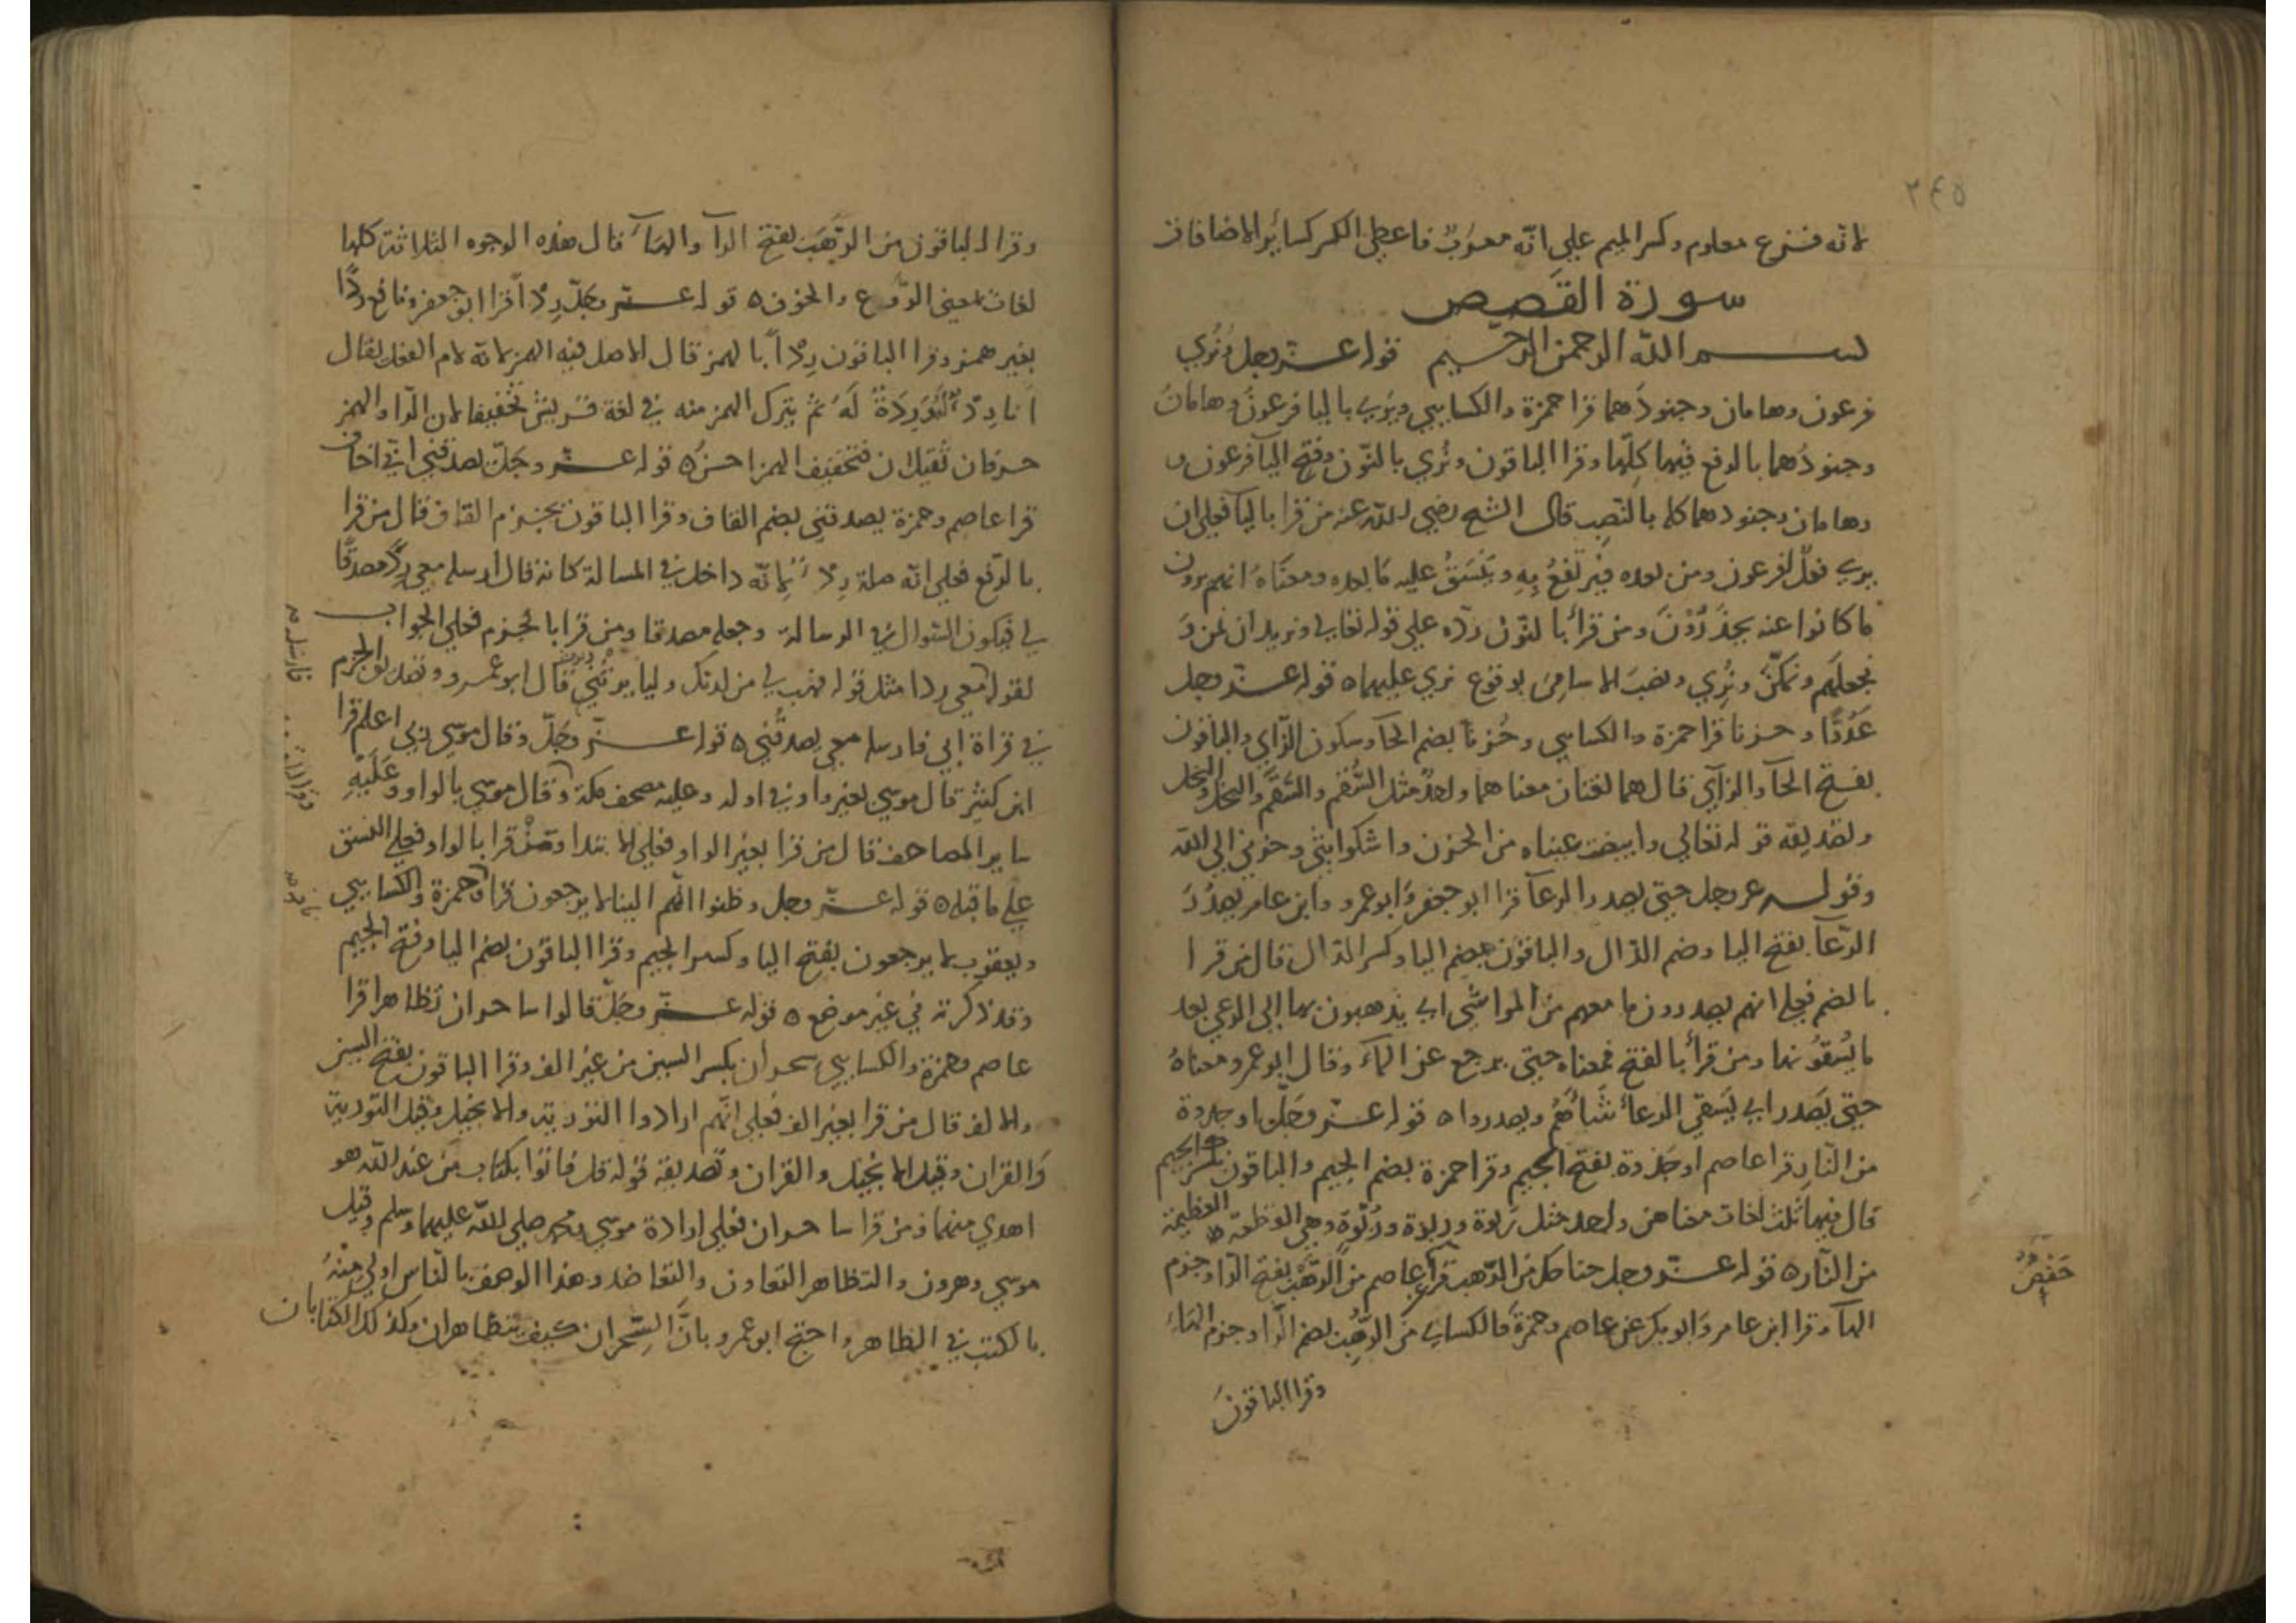 ٢٤٥
لانه فزع معلوم وكسر الميم علي انّه معرب فاعطي الكسر كسائر الاضافات
سورة القصص
بسم الله الرحمن الرحيم قوله عز وجل ونُري
فرعون وهامان وجنودهما قرا حمزة والكسايي ويري باليا فرعون وهامان
وجنودُهما بالرفع فيها كلّها وقرا الباقون ونُري بالنّون وفتح اليا فرعون و
وهامان وجنودهما كله بالنّصب قال الشيخ رضي الله عنه من قرا باليا فعلي ان
يري فعلٌ لفرعون ومن بعده فيرتفعُ بِهِ ويَنْسَقُ عليه ما بعده ومعناهُ انهم يرون
ما كانوا عنه يحذَرُوْنَ ومن قرأ بالنّون ردّه علي قوله تعالي ونريد ان نمن وَ
نجعلَهم ونمكّنَ ونُري ونصبَ الاسامي بوقوع نري عليها ٥ قوله عز وجل
عَدُوًّا وحزنا قرا حمزة والكسايي وحُزنا بضم الحآ وسكون الزّاي والباقون
بفتح الحآ والزاي قال هما لغتان معناهما واحدٌ مثل السُّقم والسَّقَم والبُخل والبَخَل
وتصديقه قوله تعالي وابيضت عيناه من الحزن واشكوا بثي وحزني الي الله
وقوله عز وجل حتي يصدر الرعآ قرا ابو جعفر وابو عمرو وابن عامر يصدُرَ
الرّعآ بفتح اليا وضم الدّال والباقون بضم اليا وكسر الدّال قال من قرا
بالضم فعلي انهم يصدرون ما معهم من المواشي اي يذهبون بها الي الرعي بعد
ما يُسقونها ومن قرأ بالفتح فمعناه حتي يرجع عن المآء وقال ابو عمرو معناهُ
حتي يصدر اي يَسقي الرعآءُ شَآءَهُم ويصدروا ٥ قوله عز وجلّ او جذوة
من النّار قرا عاصم او جَذوة بفتح الجيم وقرا حمزة بضم الجيم والباقون بكسر الجيم
قال فيها ثلث لغات معناهن واحد مثل رَبوة ورِبوة ورُبْوة وهي القطعة العظيمة
من النّار ٥ قوله عز وجل جناحك من الرّهب قرا عاصم من الرَّهْبِ بفتح الرّا وجزم
الهآ وقرا ابن عامر وابو بكر عن عاصم وحمزة والكسايي من الرُّهْب بضم الرّا وجزم الهآء
حفص
وقرا الباقون
وقرا الباقون من الرَّهَب بفتح الرآ والهآء قال هذه الوجوه الثلاثة كلها
لغات بمعني الرّوع والخوف ٥ قوله عز وجلّ رِدْءًا قرا ابو جعفر ونافع ردًا
بغير همز وقرا الباقون رِدْءًا بالهمز قال الاصل فيه الهمز لانه لام الفعل يقال
انا رِدْءٌ له ثم يترك الهمز منه في لغة قريش تخفيفا لان الرّا والهمز
حرفان ثقيلان فتخفيف الهمز احسن ٥ قوله عز وجَلّ يصدقني اني اخاف
قرا عاصم وحمزة يصدقني بضم القاف وقرا الباقون بجزم القاف قال من قرا
بالرّفع فعلي انّه صلة رِدْءٍ لانّه داخل في المسالة كانه قال ارسله معي ردًا مصدقا
لي فيكون السّوال في الرسالة وجعله مصدقا ومن قرا بالجزم فعلي الجواب
لقوله معي ردا مثل قوله فهب لي من لدنك وليا يرثني قال ابو عمرو وتصديق الجزم
في قراة ابي فارسله معي يصدقْني ٥ قوله عز وجلّ وقال موسي ربي اعلم قرا
ابن كثير قال موسي بغير واو في اوله وعليه مصحف مكة وقال موسي بالواو وعَلَيْهِ
ساير المصاحف قال من قرا بغير الواو فعلي الابتدا ومن قرا بالواو فعلي النسق
علي ما قبله ٥ قوله عز وجل وظنوا انّهم الينا لا يرجعون قرا حمزة والكسايي
ويعقوب لا يرجعون بفتح اليا وكسر الجيم وقرا الباقون بضم اليا وفتح الجيم
وقد ذكرته في غير موضع ٥ قوله عز وجلّ قالوا ساحران تظاهرا قرا
عاصم وحمزة والكسايي سحران بكسر السين من غير الف وقرا الباقون بفتح السين
والالف قال من قرا بغير الف فعلي انّهم ارادوا التورية والانجيل وقيل التورية
والقران وقيل الانجيل والقران وتصديقه قوله قل فاتوا بكتاب من عند الله هو
اهدي منهما ومن قرا ساحران فعلي ارادة موسي ومحمد صلي الله عليهما وسلم وقيل
موسي وهرون والتظاهر التعاون والتعاضد وهذا الوصف بالنّاس اولي مِنْهُ
بالكتب في الظاهر واحتج ابو عمرو بانَّ السِّحران كيف يتظاهران وكذلك الكتابان